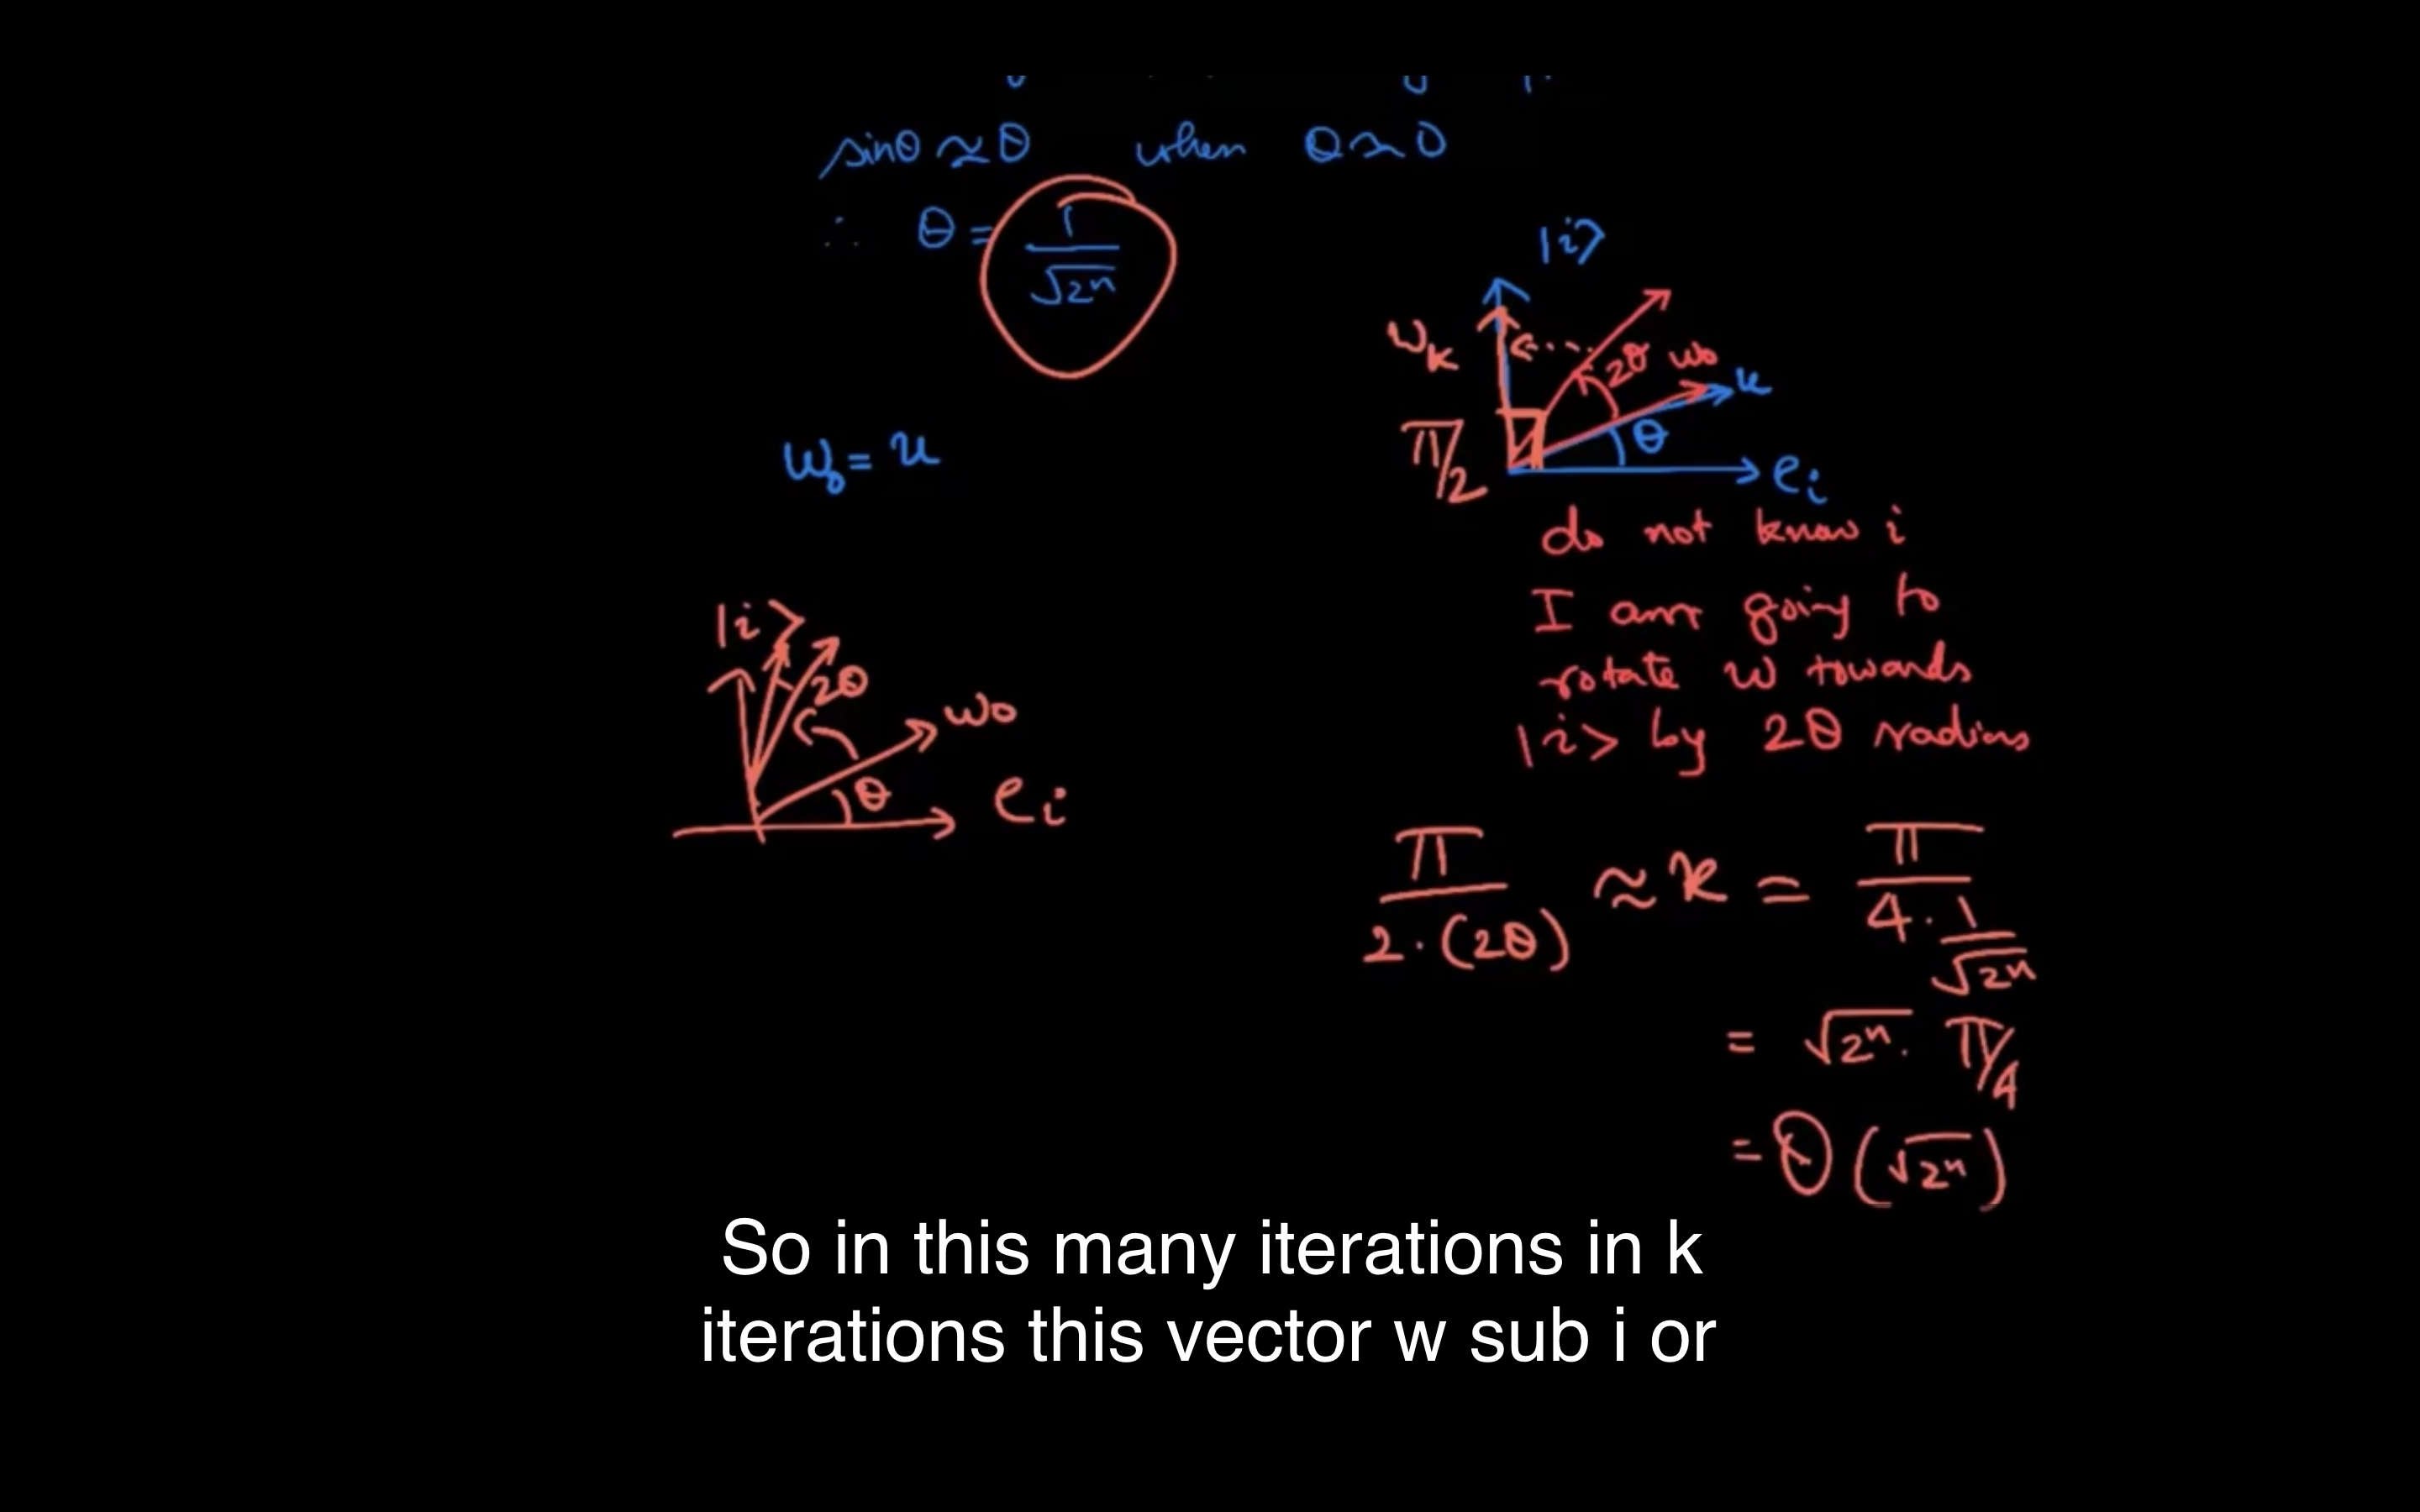 sinθ ≈ θ when θ ≈ 0
∴ θ = 1/√2ⁿ
|i⟩
w_k
2θ w₀
u
π/2
θ
e_i
w₀ = u
do not know i
I am going to
rotate w towards
|i> by 2θ radians
|i⟩
2θ
w₀
θ
e_i
π/2·(2θ) ≈ k = π/4·1/√2ⁿ
= √2ⁿ · π/4
= O(√2ⁿ)
So in this many iterations in k
iterations this vector w sub i or